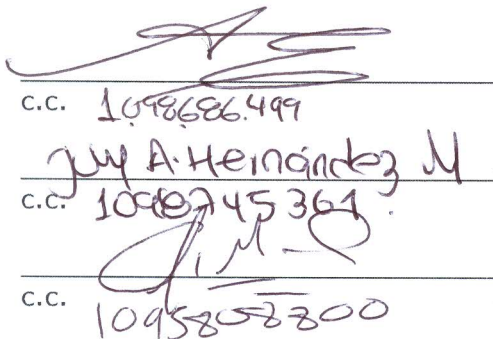 C.C. 1.098.686.499
July A. Hernández M
C.C. 1098745361.
C.C. 1095808800